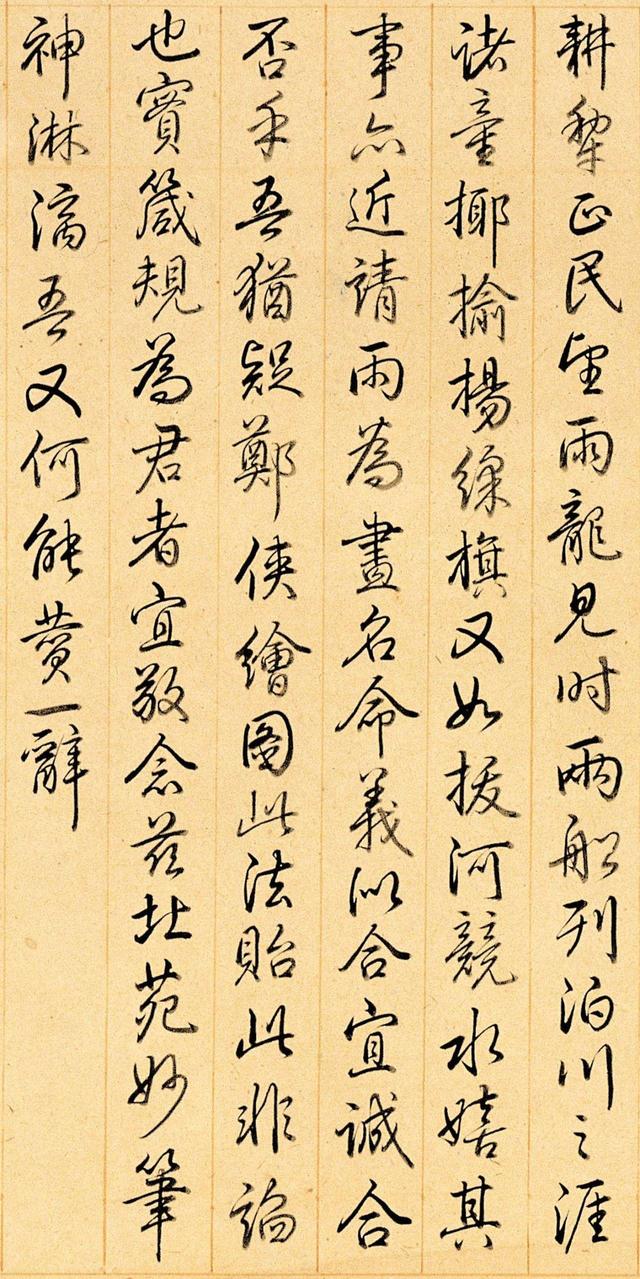 耕犂正民望雨龍見时兩船列泊川之涯
諸童揶揄楊綵旗又如拔河競水嬉其
事亦近請雨為畫名命義似合宜誠合
否乎吾猶疑鄭俠繪圖此法貽此非諂
也實箴規為君者宜敬念茲北苑妙筆
神淋漓吾又何能費一辭